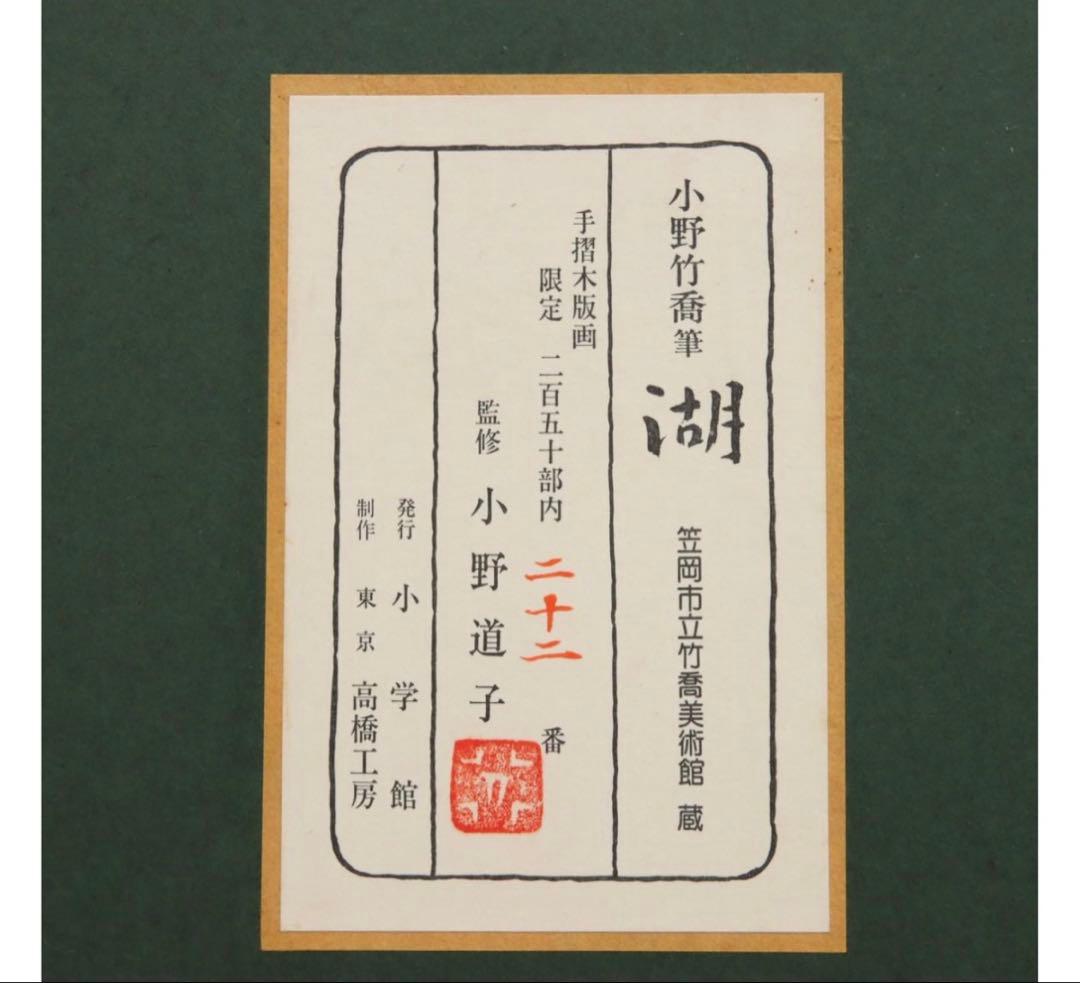 小野竹喬筆 湖 笠岡市立竹喬美術館 蔵
手摺木版画
限定 二百五十部内 二十二 番
監修 小野道子
発行 小学館
制作 東京 高橋工房